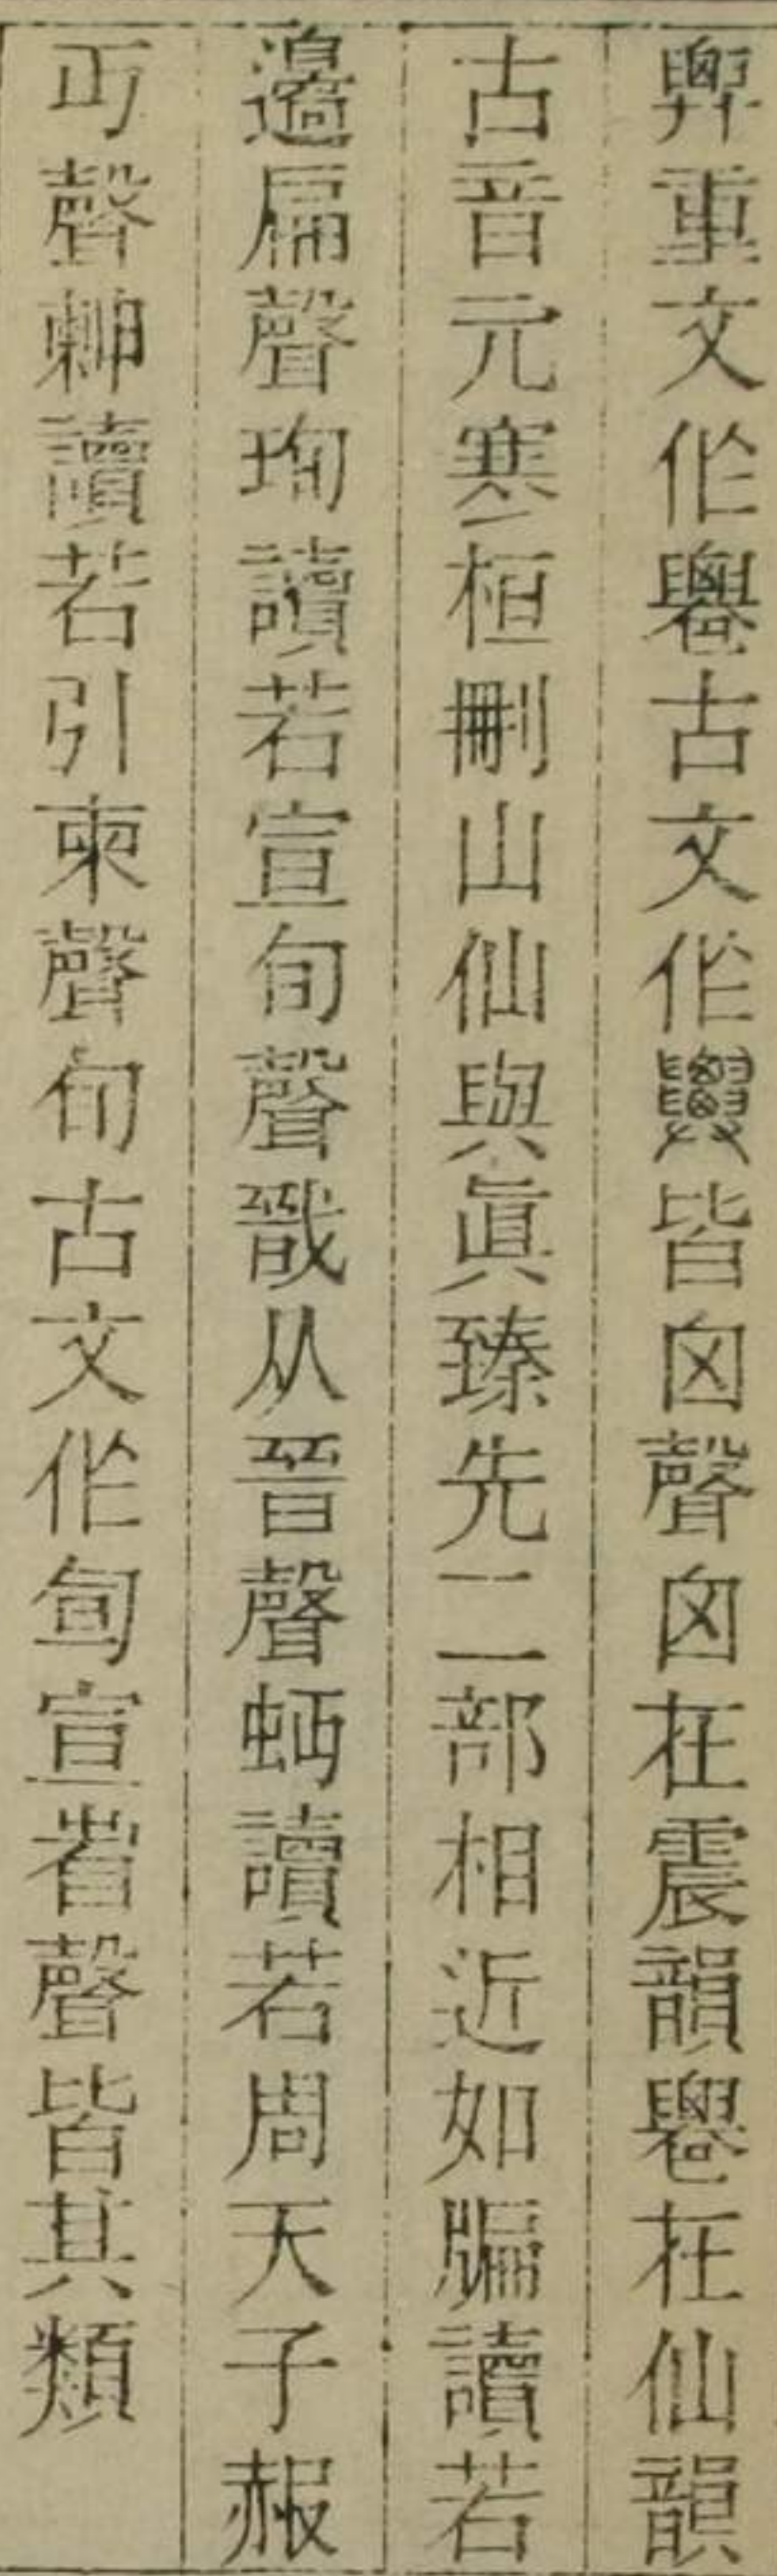 𢍱重文作𠨧古文作皆囟聲囟在震韻𠨧在仙韻
古音元寒桓刪山仙與眞臻先二部相近如牑讀若
邊扁聲珣讀若宣旬聲戩从晉聲讀若周天子赧
丏聲朄讀若引柬聲旬古文作㝁宣省聲皆其類